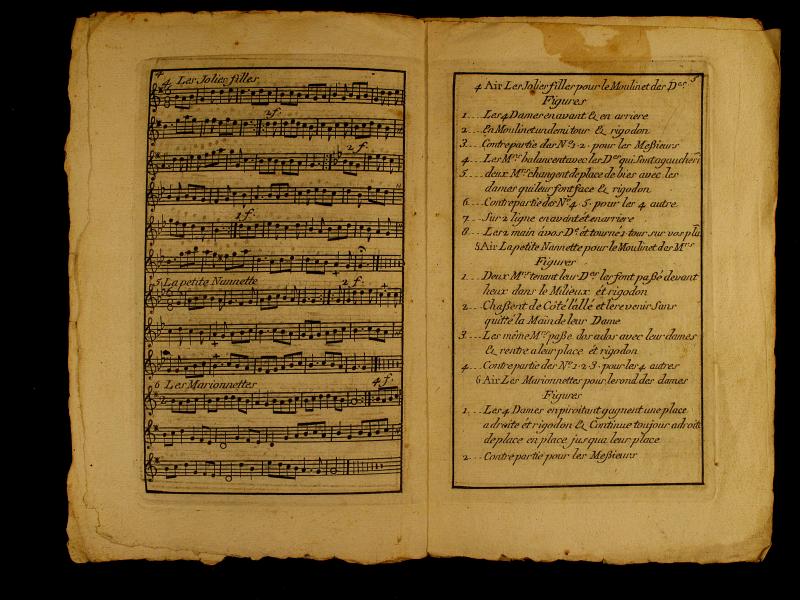 4
4 Les Jolies filles
2 f.
2 f.
1 f.
5 La petite Nannette
2 f.
6 Les Marionnettes
4 f.
5
4 Air Les Jolies filles pour le Moulinet des D.es
Figures
1... Les 4 Dames en avant & en arriere
2... En Moulinet un demi tour & rigodon
3... Contre partie des N.os 1. 2. pour les Meßieurs
4... Les M.rs balancent avec les D.es qui sont a gauche
5... deux M.rs changent de place de biès avec les
dames qui leur font face & rigodon
6... Contre partie des N.os 4. 5. pour les 4 autre
7... Sur 2 ligne en avant et en arriere
8... Les 2 main à vos D.es et tourné 1 tour sur vos
5 Air La petite Nannette pour le Moulinet des M.rs
Figures
1... Deux M.rs tenant leur D.es les font paßé devant
heux dans le Milieux ét rigodon
2... Chaßent de Côté l'allé et le revenir sans
quitté la Main de leur Dame
3... Les même M.rs paße dos a dos avec leur dames
& rentre a leur place ét rigodon
4... Contre partie des N.os 1. 2. 3. pour les 4 autres
6 Air Les Marionnettes pour le rond des dames
Figures
1... Les 4 Dames en piroitant gagnent une place
a droite ét rigodon & Continue toujour a droite
de place en place jusqua leur place
2... Contre partie pour les Meßieurs